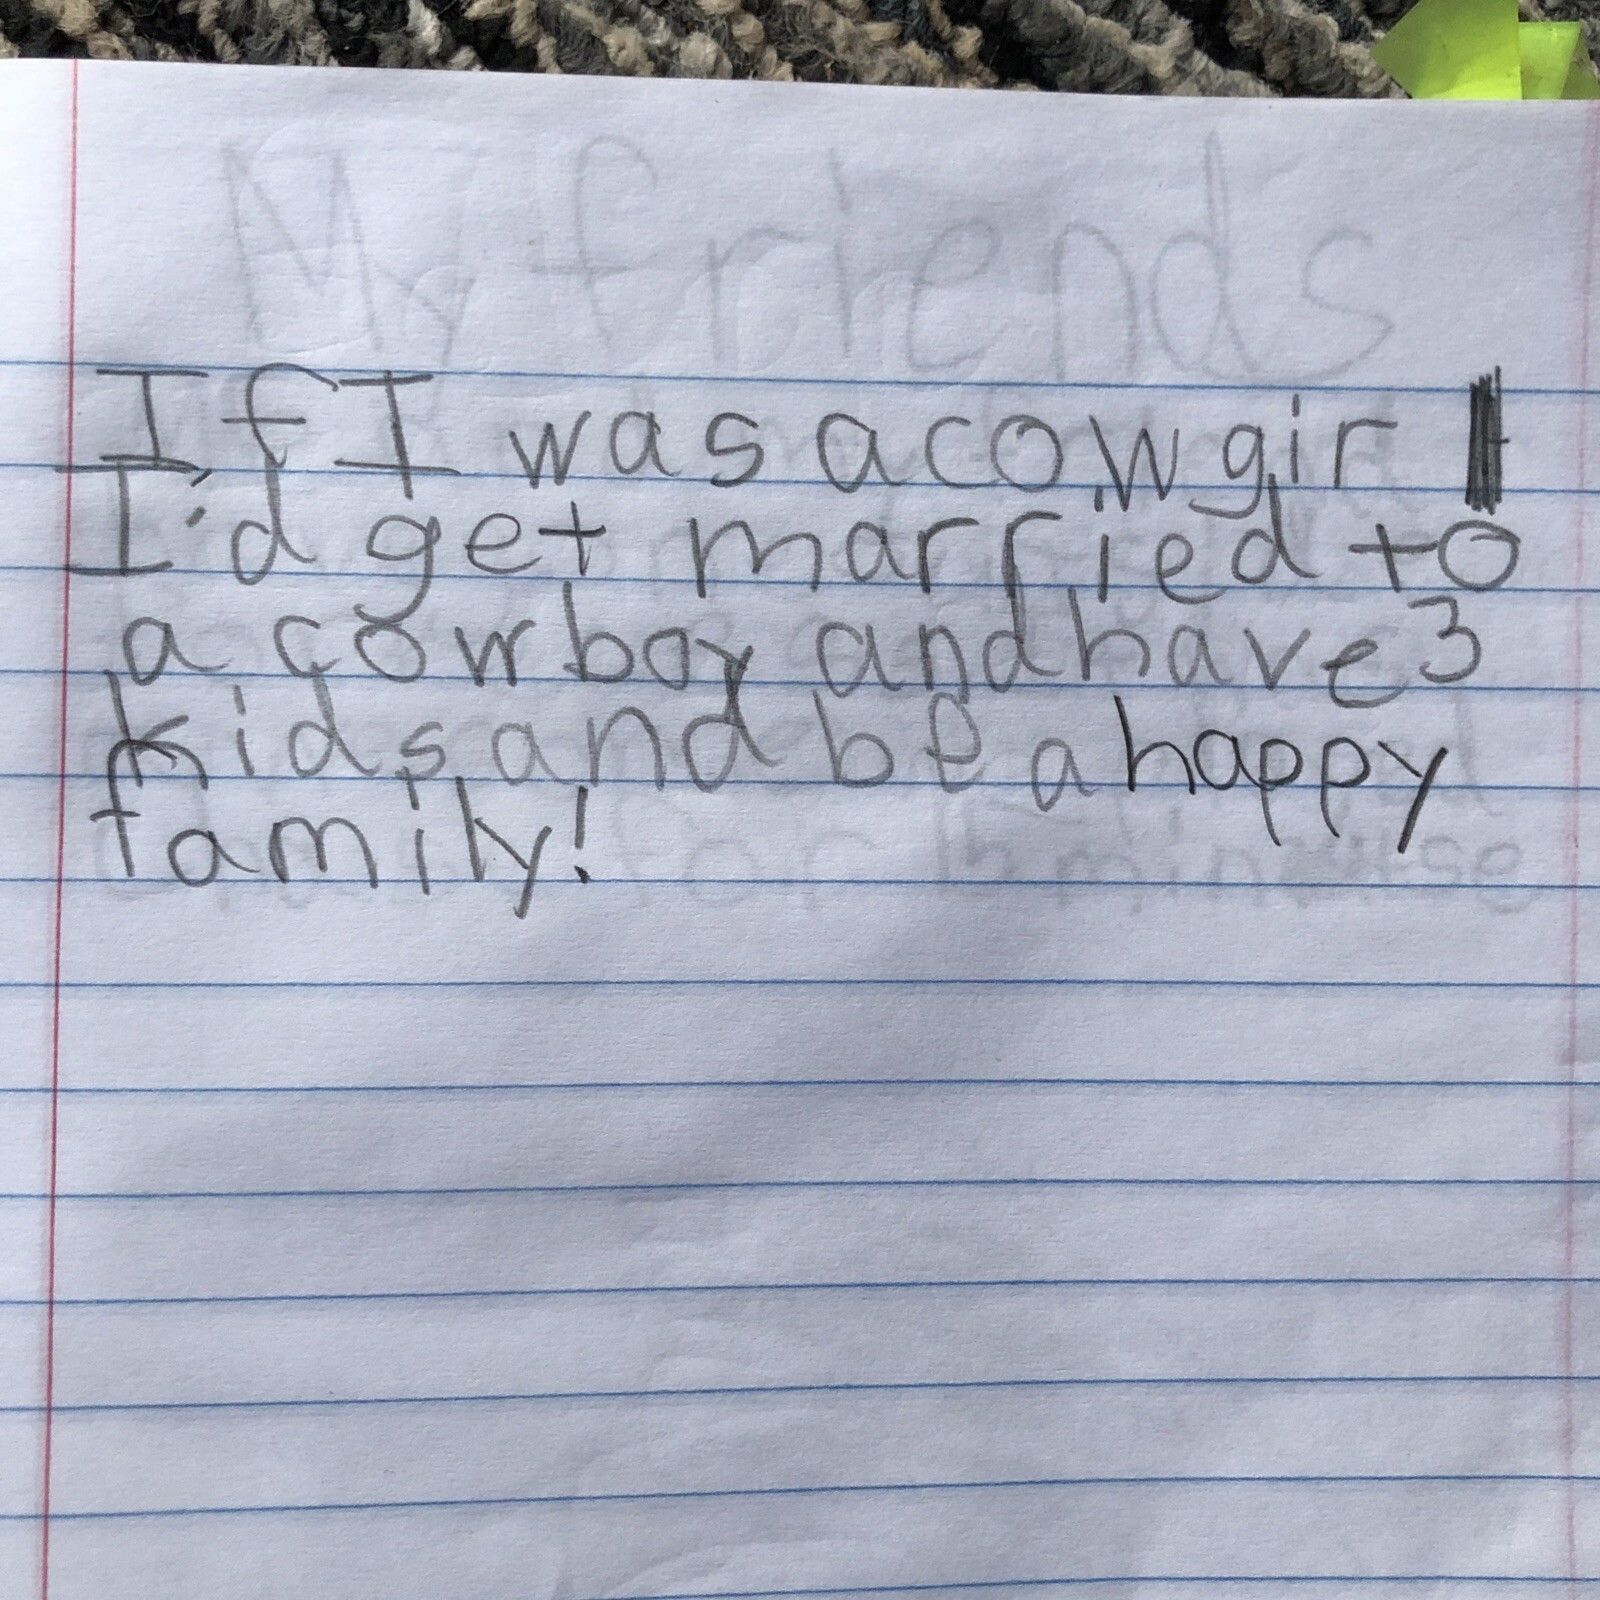 My friends
If I was a cowgirl
I'd get married to
a cowboy and have 3
kids and be a happy
family!
for 15 minutes